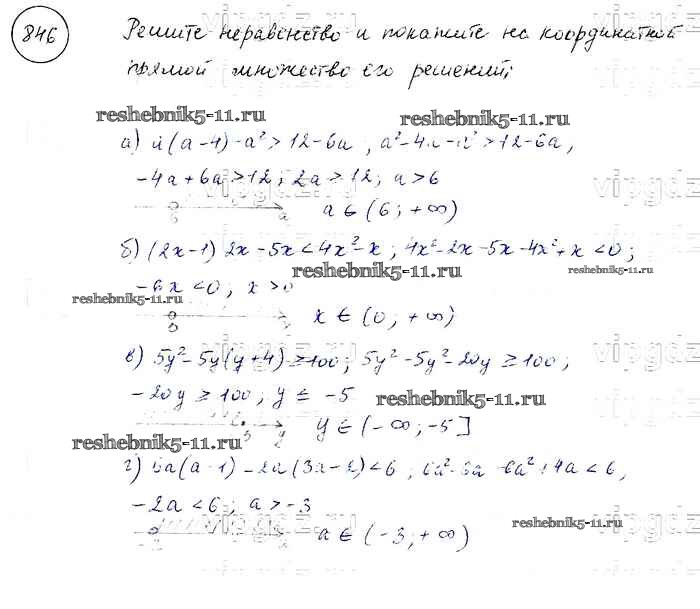 846
Решите неравенство и покажите на координатной
прямой множество его решений:
reshebnik5-11.ru
reshebnik5-11.ru
а) a(a-4)-a²>12-6a, a²-4a-a²>12-6a,
-4a+6a>12; 2a>12; a>6
6 a a∈(6;+∞)
б) (2x-1)2x-5x<4x²-x; 4x²-2x-5x-4x²+x<0;
reshebnik5-11.ru
reshebnik5-11.ru
-6x<0, x>0
reshebnik5-11.ru
0 x∈(0;+∞)
в) 5y²-5y(y+4)≥100; 5y²-5y²-20y≥100;
-20y≥100, y≤-5
reshebnik5-11.ru
y y∈(-∞;-5]
reshebnik5-11.ru
г) 6a(a-1)-2a(3a-2)<6, 6a²-6a-6a²+4a<6,
-2a<6, a>-3
reshebnik5-11.ru
a∈(-3;+∞)
vipgdz
vipgdz
vipgdz
vipgdz
vipgdz
vipgdz